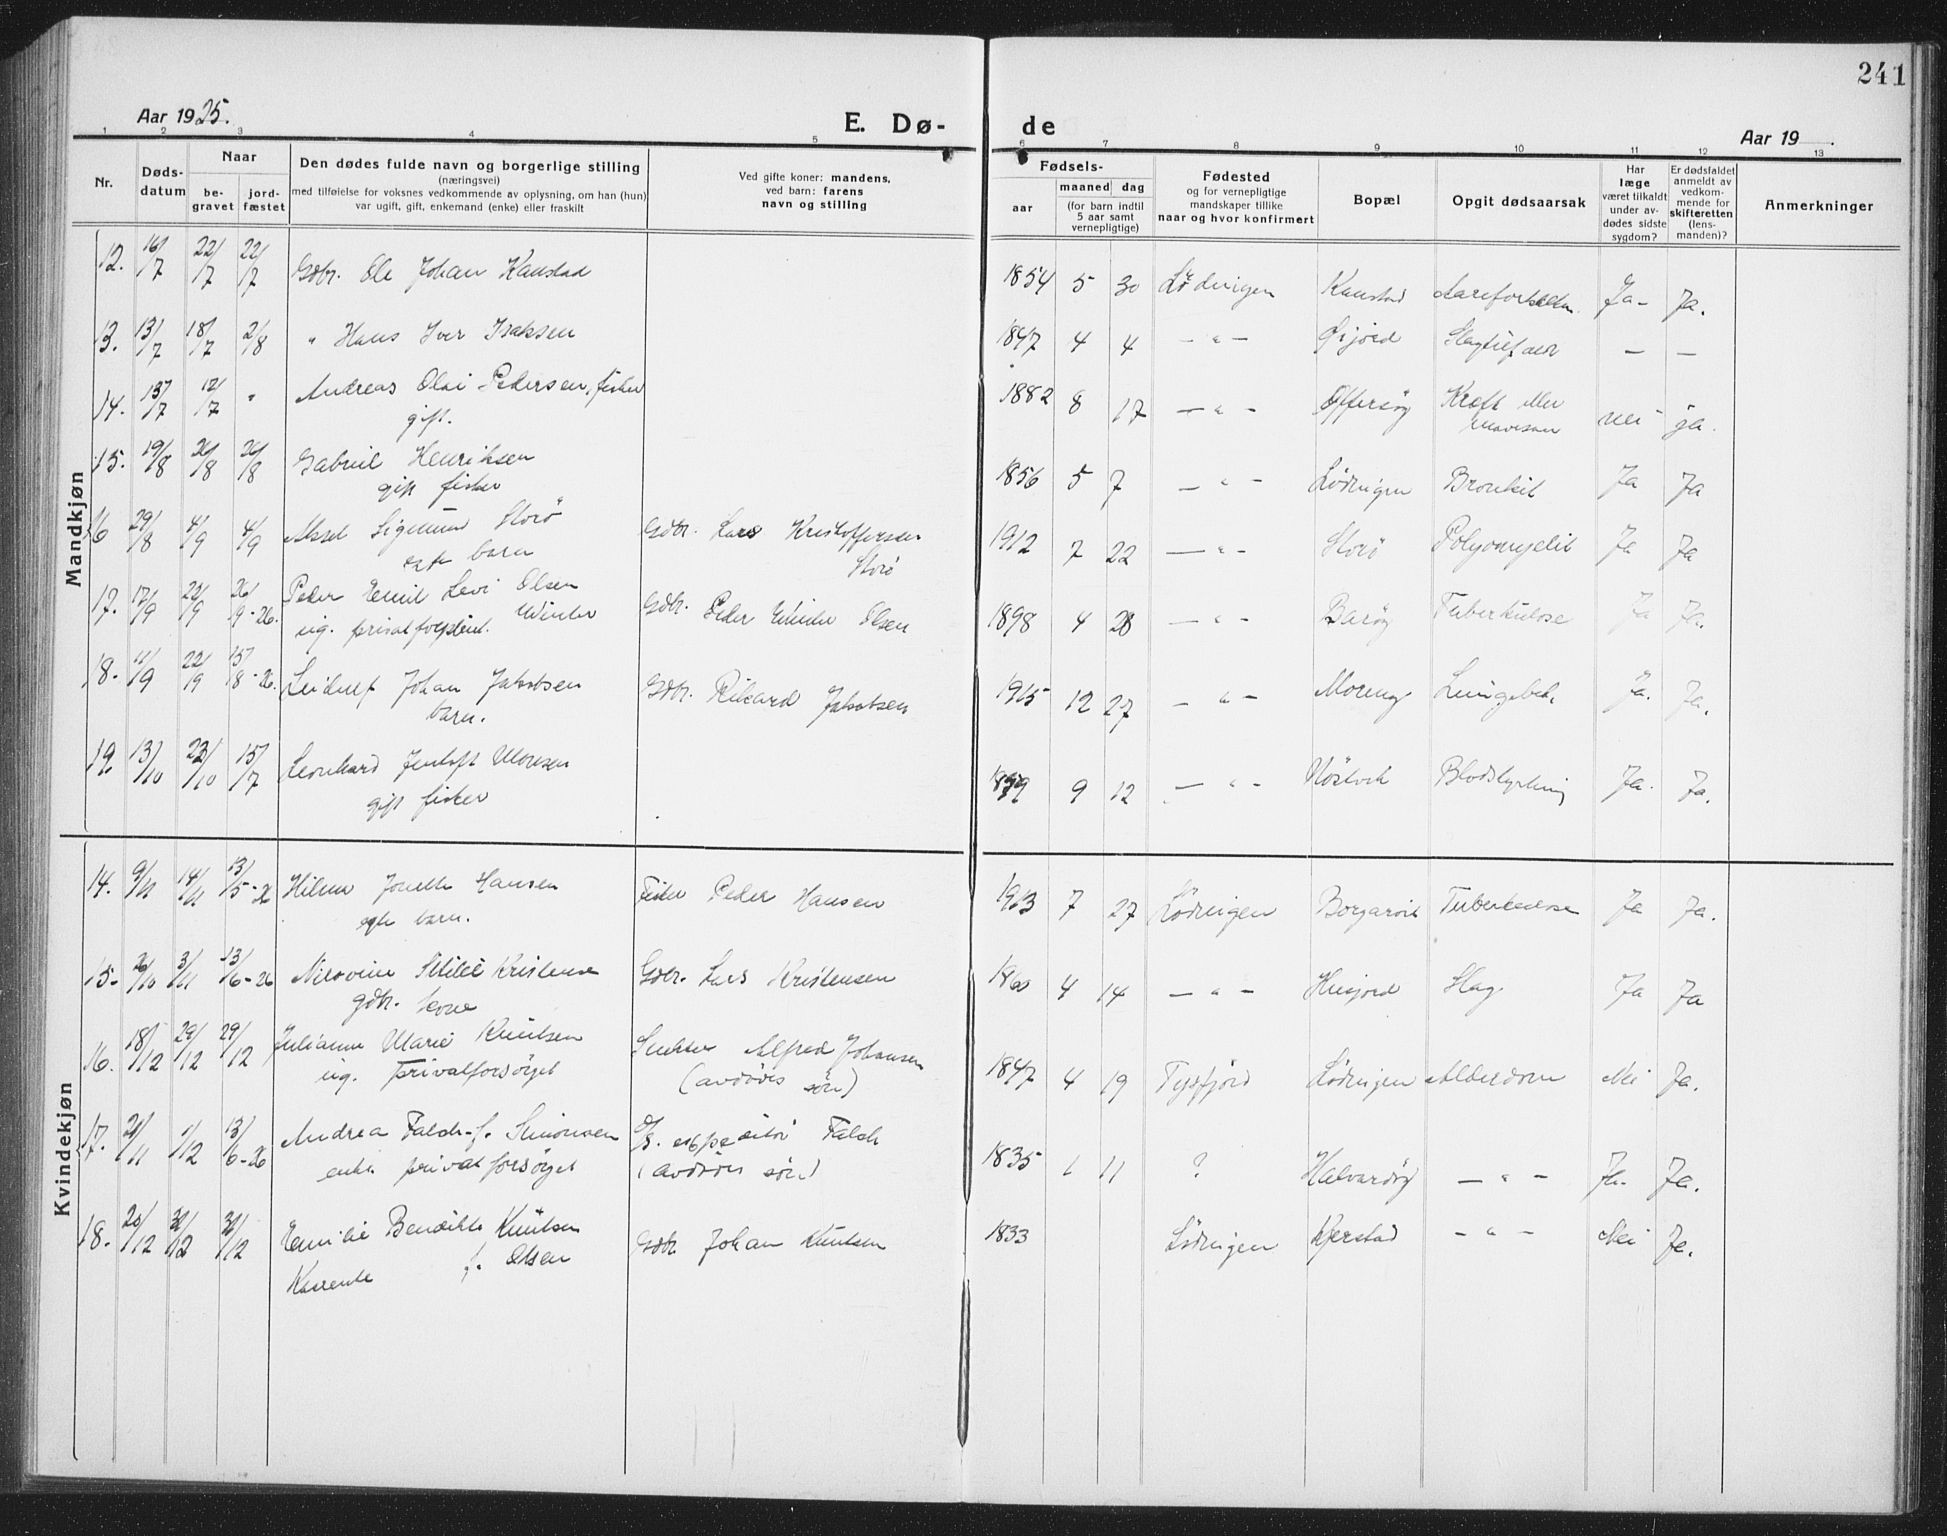 241
Aar 1925.
E. Dø-
de
Aar 19
1 2 3 4 5 6 7 8 9 10 11 12 13
Nr.
Døds-
datum
Naar
be-
gravet
jord-
fæstet
Den dødes fulde navn og borgerlige stilling
(næringsvei)
med tilføielse for voksnes vedkommende av oplysning, om han (hun)
var ugift, gift, enkemand (enke) eller fraskilt
Ved gifte koner: mandens,
ved barn: farens
navn og stilling
Fødsels-
aar
maaned dag
(for barn indtil
5 aar samt
vernepligtige)
Fødested
og for vernepligtige
mandskaper tillike
naar og hvor konfirmert
Bopæl
Opgit dødsaarsak
Har
læge
været tilkaldt
under av-
dødes sidste
sygdom?
Er dødsfaldet
anmeldt av
vedkom-
mende for
skifteretten
(lens-
manden)?
Anmerkninger
Mandkjøn
12. 16/7 22/7 22/7 Gdbr. Ole Johan Kanstad 1854 5 30 Lødingen Kanstad Ja - Ja.
13. 13/7 18/7 2/8 " Hans Iver Isaksen 1847 4 4 — " — Slagtilfælde — —
14. 13/7 17/7 " Andreas Olai Pedersen, fisker 1882 8 17 — " — Offersøy Kræft eller nei - ja.
gift.
15. 19/8 26/8 26/8 Gabriel Henriksen 1856 5 7 — " — Lødingen Bronkit Ja Ja
gift fisker
16 29/8 4/9 4/9 Aksel Sigmund Storø Gdbr. Lars Kristoffersen 1912 7 22 — " — Storø Polyomyelit Ja Ja
egte barn Storø
17. 17/9 23/9 26/9-26. Peder Emil Levi Olsen Gdbr. Peder Winter Olsen 1898 4 28 — " — Barøy Tuberkulose Ja Ja.
ug. privat forpleiet. Winter
18. 11/9 22/9 15/8-26. Leidulf Johan Jakobsen Gdbr. Rikard Jakobsen 1915 12 27 — " — Lungebet. Ja. Ja.
barn.
19. 13/10 23/10 15/7 Leonhard Jentoft Monsen 9 12 — " — Blodstyrtning Ja. Ja.
gift fisker
Kvindekjøn
14. 9/11 14/11 13/5-26 Jonette Hansen Fisker Peder Hansen 1913 7 27 Lødingen Tuberkulose Ja Ja.
egte barn.
15. 26/10 3/11 13/6-26 Kristensen Gdbr. Lars Kristensen 1860 4 14 — " — Husjord Slag. Ja Ja
gdbr. kone
16. 18/12 29/12 29/12 Julianne Marie Knutsen Snekker Alfred Johansen 1847 4 19 Tysfjord Lødingen Alderdom Nei Ja.
ug. Privatforsørget (avdødes søn)
17. 21/11 1/12 13/6-26 Andrea Falch f. Simonsen expeditør Falch 1835 1 11 ? Halvardøy — " — Ja. Ja.
enke privatforsørget (avdødes søn)
18. 20/12 Emilie Benedikte Knutsen Gdbr. Johan Knutsen 1833 Lødingen Kjerstad — " — Nei Ja.
Kaarenke f. Olsen